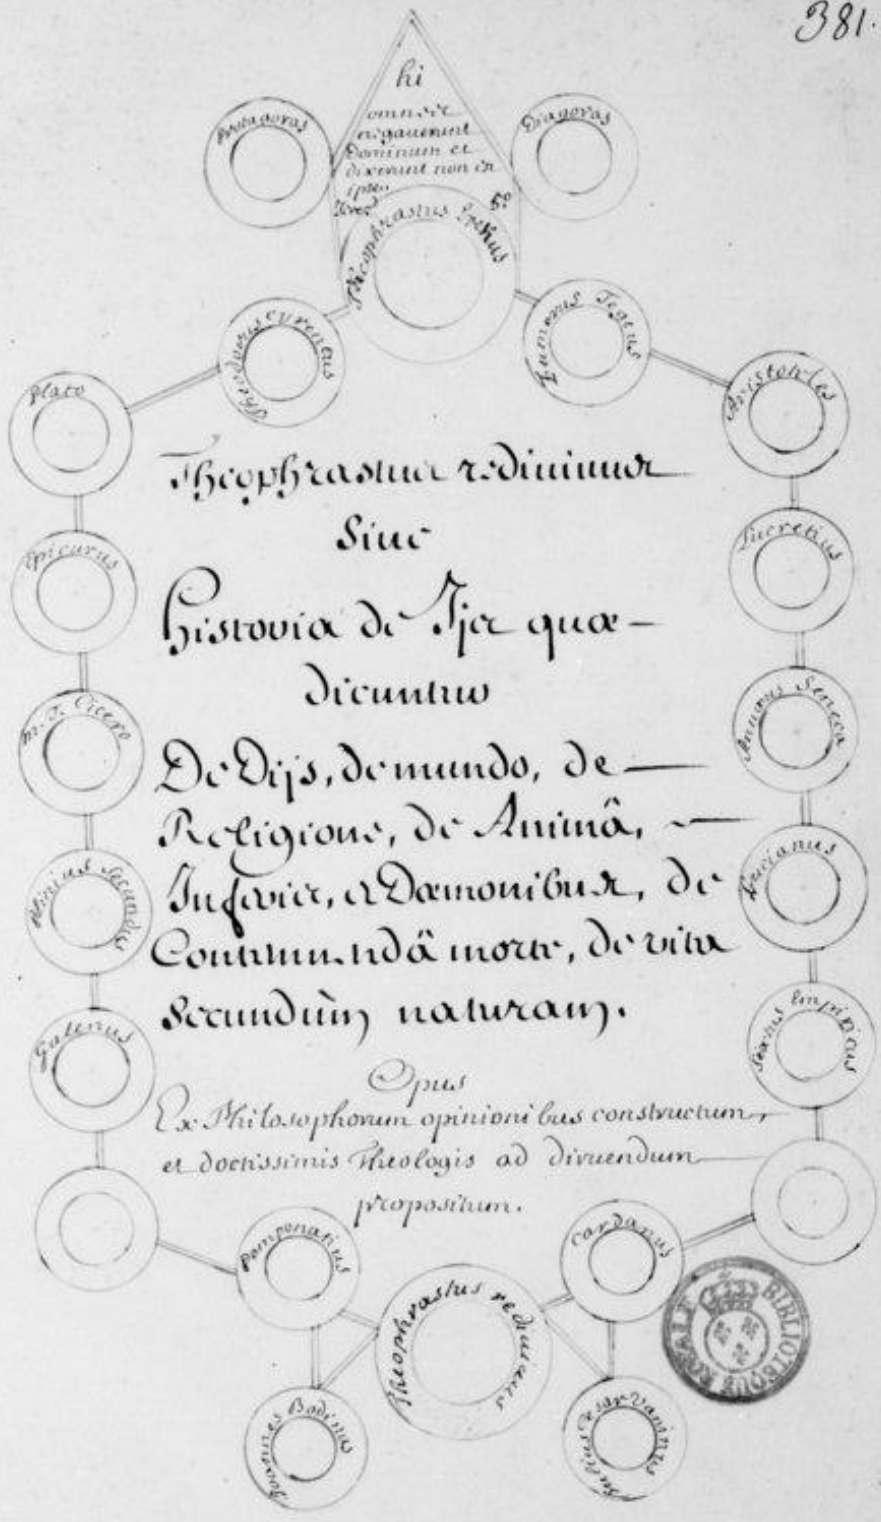 381.
hi
omnes
negauerunt
Dominum et
dixerunt non est
ipse.
5°
Protagoras
Diagoras
Theophrastus
Theodorus Cyreneus
Eumerus Tegeus
Plato
Aristoteles
Epicurus
Lucretius
M. T. Cicero
Annæus Seneca
Plinius Secundus
Lucianus
Galenus
Sextus Empiricus
Theophrastus rediuiuus
Siue
Historia de Ijs quæ
dicuntur
De Dijs, de mundo, de
Religione, de Animâ,
Inferis, et Dæmonibus, de
Contemnendâ morte, de vita
Secundùm naturam.
Opus
Ex Philosophorum opinionibus constructum,
et doctissimis Theologis ad diruendum
propositum.
Pomponatius
Cardanus
Theophrastus rediuiuus
Joannes Bodinus
Julius Cesar Vaninus
BIBLIOTHEQUE ROYALE